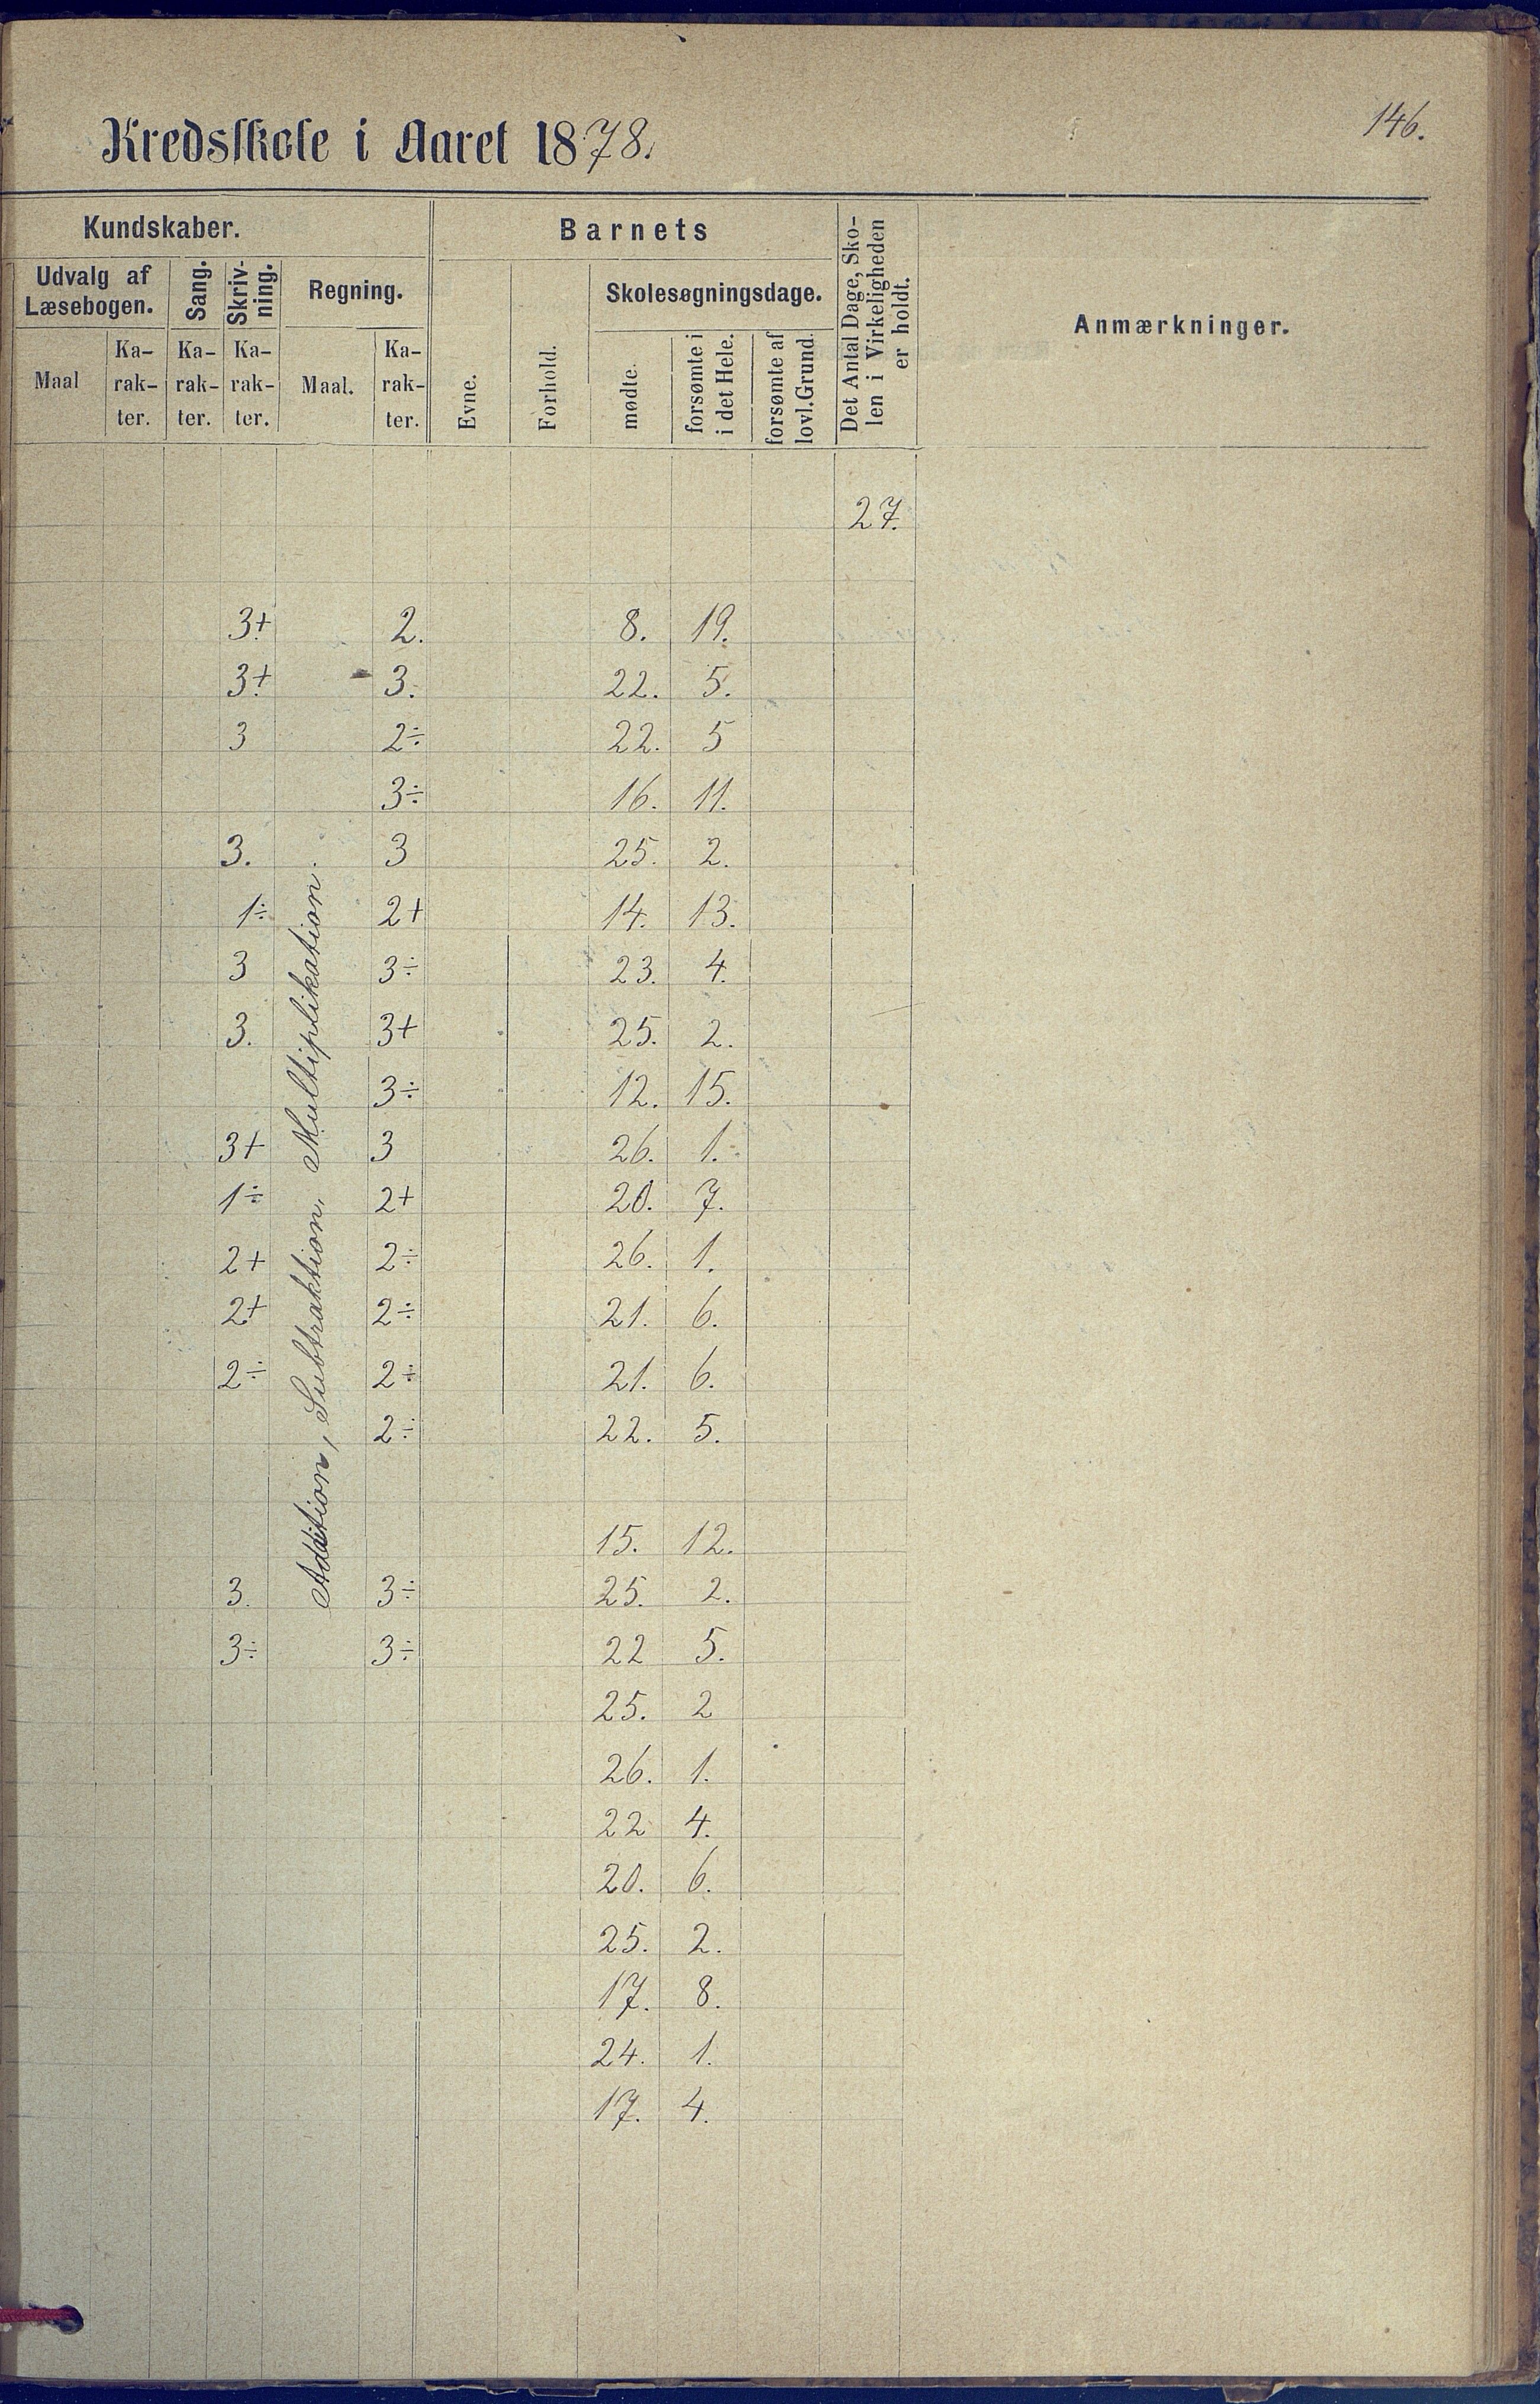 Kredsskole i Aaret 1878.
146.
Kundskaber.
Barnets
Det Antal Dage, Sko-
len i Virkeligheden
er holdt.
Anmærkninger.
Udvalg af
Læsebogen.
Sang.
Skriv-
ning.
Regning.
Skolesøgningsdage.
Maal
Ka-
rak-
ter.
Ka-
rak-
ter.
Ka-
rak-
ter.
Maal.
Ka-
rak-
ter.
Evne.
Forhold.
mødte.
forsømte i
i det Hele.
forsømte af
lovl. Grund.
27.
3+ 2. 8. 19.
3+ 3. 22. 5.
3 2÷ 22. 5
3÷ 16. 11.
3. 3 25. 2.
1÷ 2+ 14. 13.
3 3÷ 23. 4.
3. 3+ 25. 2.
3÷ 12. 15.
3+ 3 26. 1.
1÷ 2+ 20. 7.
2+ 2÷ 26. 1.
2+ 2÷ 21. 6.
2÷ 2÷ 21. 6.
2÷ 22. 5.
Addition, Subtraktion, Multiplikation.
15. 12.
3. 3÷ 25. 2.
3÷ 3÷ 22 5.
25. 2
26. 1.
22 4.
20. 6.
25. 2.
17. 8.
24. 1.
17. 4.